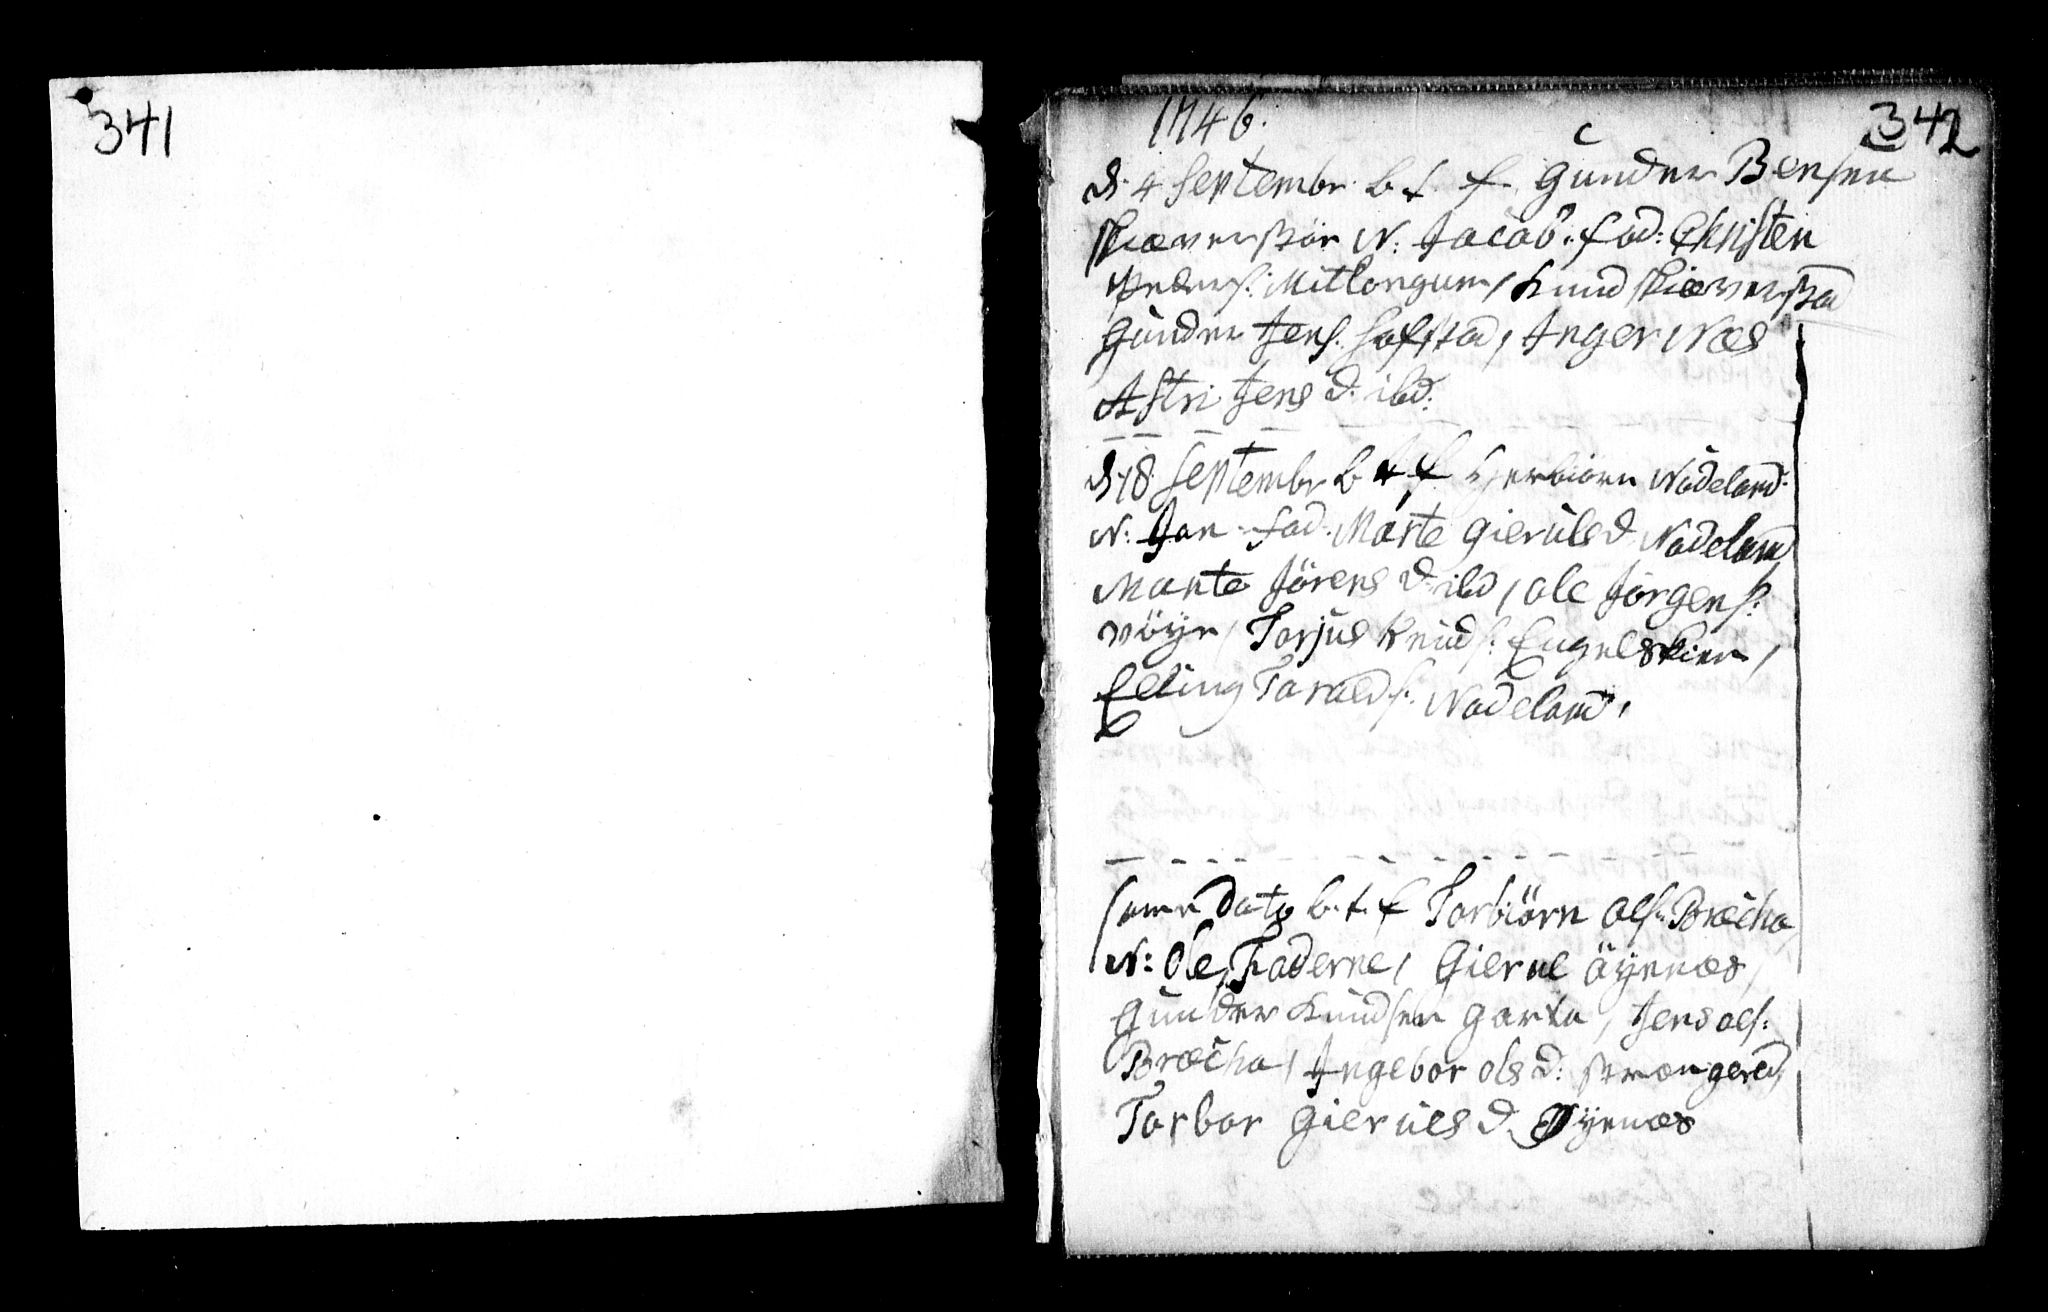 341
1746.
342
d. 4 Septembr. b. t. f. Gunder Bensen
N: Jacob. fad: Christen
Peders: Mitlongum / Knud Skieversta
Gunder Jens. Hafstad, Anger Næs
Astri Jens d. ibd:
d. 18 Septembr b t f Herbiorn Nodeland.
N: Jan fad. Marte Gieruls d. Nodeland
Marte Jörens d. ibd / ole Jörgens:
Vöyn / Torjus Knuds: Engelskien /
Elling Taralds: Nodeland,
samme Dato b. t. f Torbiörn ols: Bræcha,
N: Ole, Faderne / Gierul öyenæs,
Gunder Knudsen Garta, Jens ols:
Bræcha / Ingebor ols d: Strængered,
Torbor Gieruls d. Øyenæs